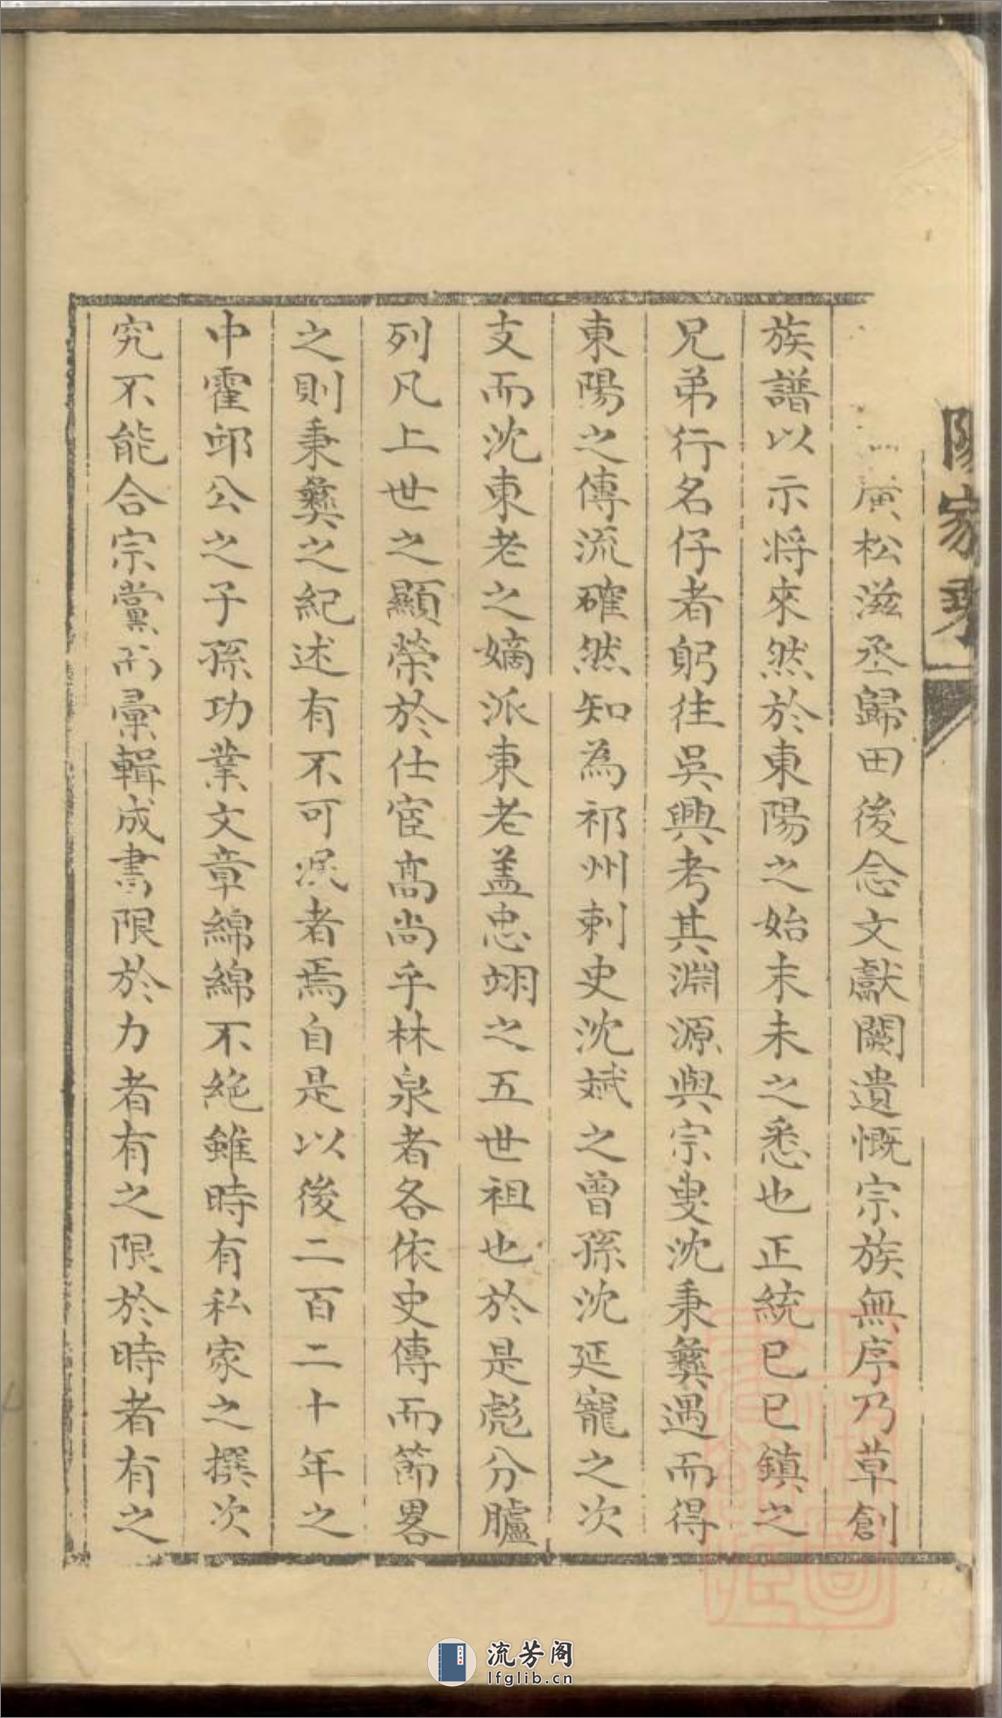 家
廣松滋丞歸田後念文獻闕遺慨宗族無序乃草創
族譜以示將來然於東陽之始末未之悉也正統己巳鎮之
兄弟行名仔者躬往吳興考其淵源與宗叟沈秉彝遇而得
東陽之傳流確然知為祁州刺史沈斌之曾孫沈延寵之次
支而沈東老之嫡派東老盖忠翊之五世祖也於是彪分臚
列凡上世之顯榮於仕宦高尚乎林泉者各依史傳而節畧
之則秉彝之紀述有不可泯者焉自是以後二百二十年之
中霍邱公之子孫功業文章綿綿不絶雖時有私家之撰次
究不能合宗黨而彙輯成書限於力者有之限於時者有之
流芳阁
lfglib.cn